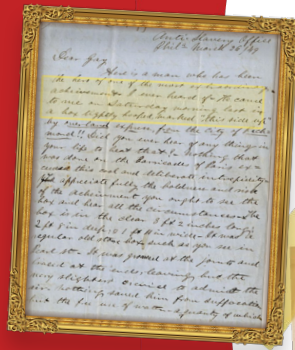 Anti-Slavery Office
Phila March 26/49
Dear Gay,
Here is a man who has been
the hero of one of the most extraordinary
achievements I ever heard of. He came
to me on Saturday morning last in
a box tightly hooped marked "This side up"
by overland express, from the city of Rich
mond!! Did you ever hear of any thing in
your life to beat that? Nothing that
was done on the barricades of
this cool and deliberate intrepidity
To appreciate fully the boldness and risk
of the achievement you ought to see the
box and hear all the circumstances. The
box is in the clear 3 ft 2 inches long
2 ft 8 in deep & 1 ft 11 in wide. It was a
regular old store box such as you see in
It was grooved at the joints and
at the ends, leaving but the
very slightest crevice to admit the
air. Nothing saved him from suffocation
but the free use of water a quantity of which